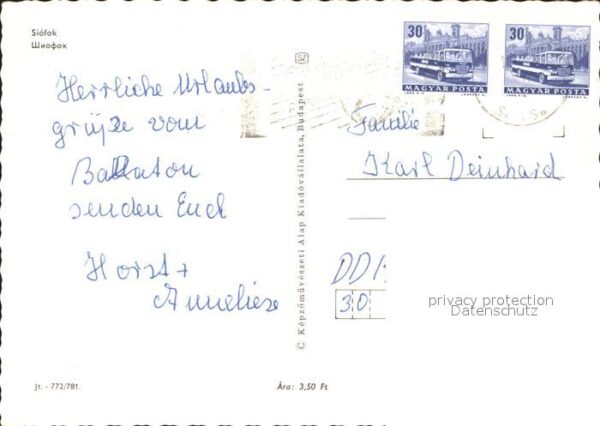 Siófok
Шиофок
Herrliche Urlaubs-
grüße vom
Balaton
senden Euch
Horst +
Anneliese
Jt. - 772/781.
Ára: 3,50 Ft
© Képzőművészeti Alap Kiadóvállalata, Budapest
30f
MAGYAR POSTA
30f
MAGYAR POSTA
Familie
Karl Deinhard
DDR
30
privacy protection
Datenschutz